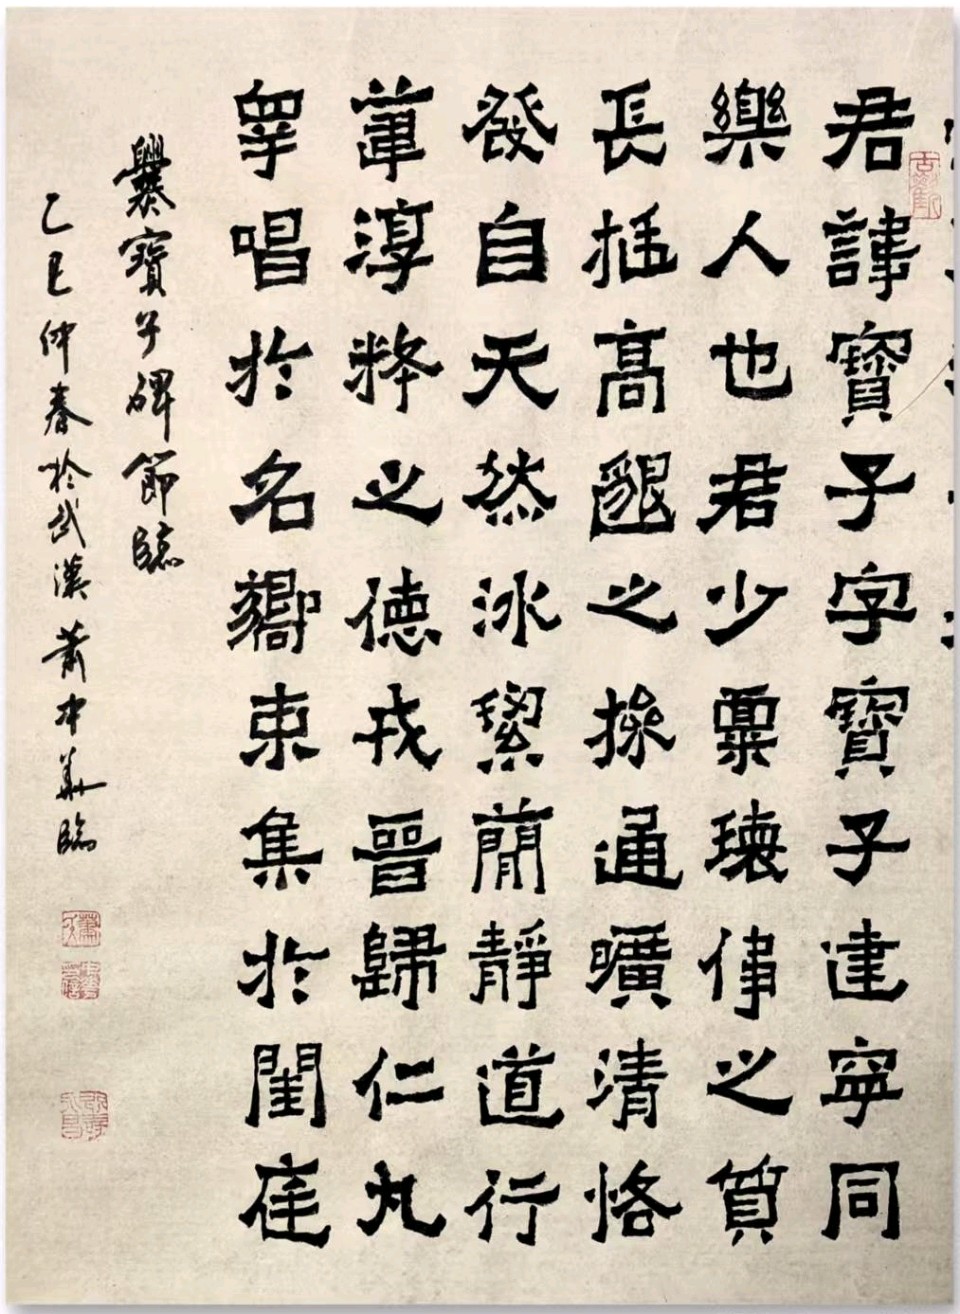 君諱寶子字寶子建寧同
樂人也君少稟瓌偉之質
長挺高邈之操通曠清恪
發自天然冰絜簡靜道行
葦淳粹之德戎晉歸仁九
皐唱於名嚮束集於閨庭
爨寶子碑節臨
乙巳仲春於武漢蕭中華臨